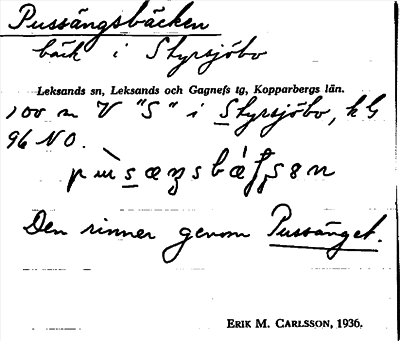 Pussängsbäcken
bäck i Styrsjöbo
Leksands sn, Leksands och Gagnefs tg, Kopparbergs län.
100 m V "S" i Styrsjöbo, kG
96 NO.
Den rinner genom Pussänget.
ERIK M. CARLSSON, 1936.